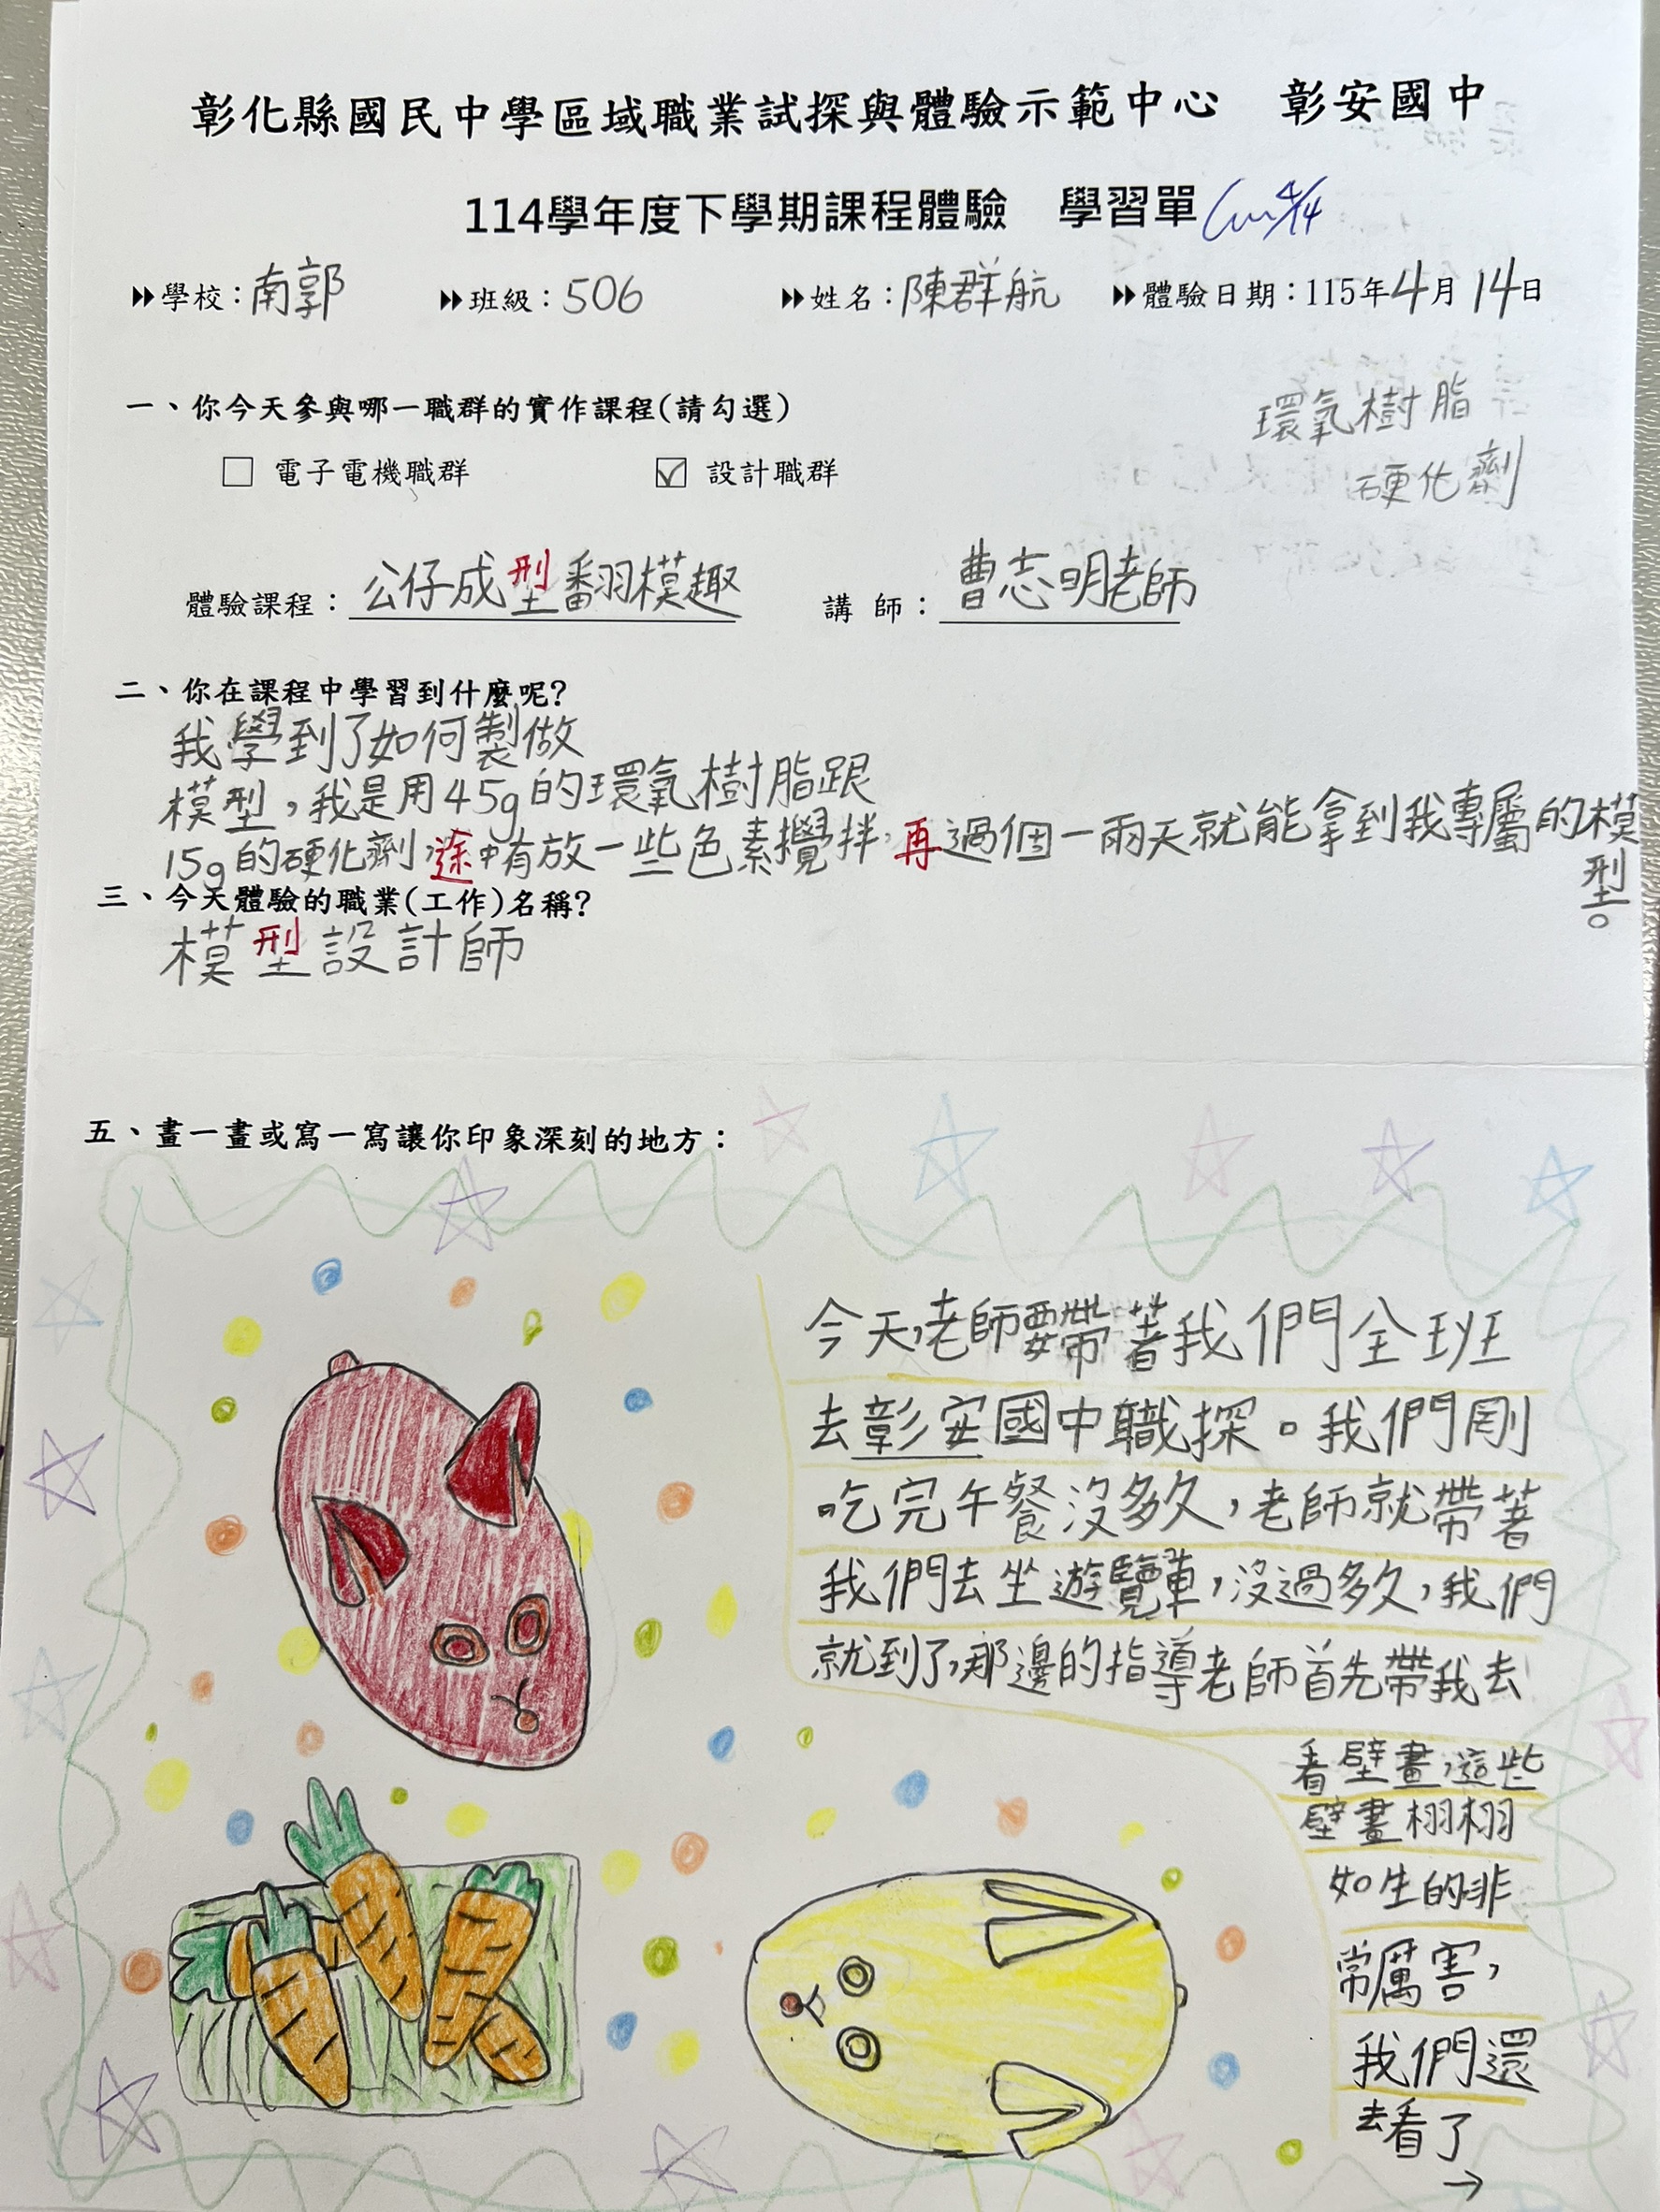 彰化縣國民中學區域職業試探與體驗示範中心　彰安國中
114學年度下學期課程體驗　學習單 4/14
學校：南郭　班級：506　姓名：陳群航　體驗日期：115年4月14日
一、你今天參與哪一職群的實作課程(請勾選)
環氧樹脂
□ 電子電機職群　☑ 設計職群
硬化劑
體驗課程：公仔成型翻模趣　講 師：曹志明老師
二、你在課程中學習到什麼呢?
我學到了如何製做
模型，我是用45g的環氧樹脂跟
15g的硬化劑，途中有放一些色素攪拌，再過個一兩天就能拿到我專屬的模
型。
三、今天體驗的職業(工作)名稱?
模型設計師
五、畫一畫或寫一寫讓你印象深刻的地方：
今天，老師要帶著我們全班
去彰安國中職探。我們剛
吃完午餐沒多久，老師就帶著
我們去坐遊覽車，沒過多久，我們
就到了，那邊的指導老師首先帶我去
看壁畫，這些
壁畫栩栩
如生的非
常厲害，
我們還
去看了
→